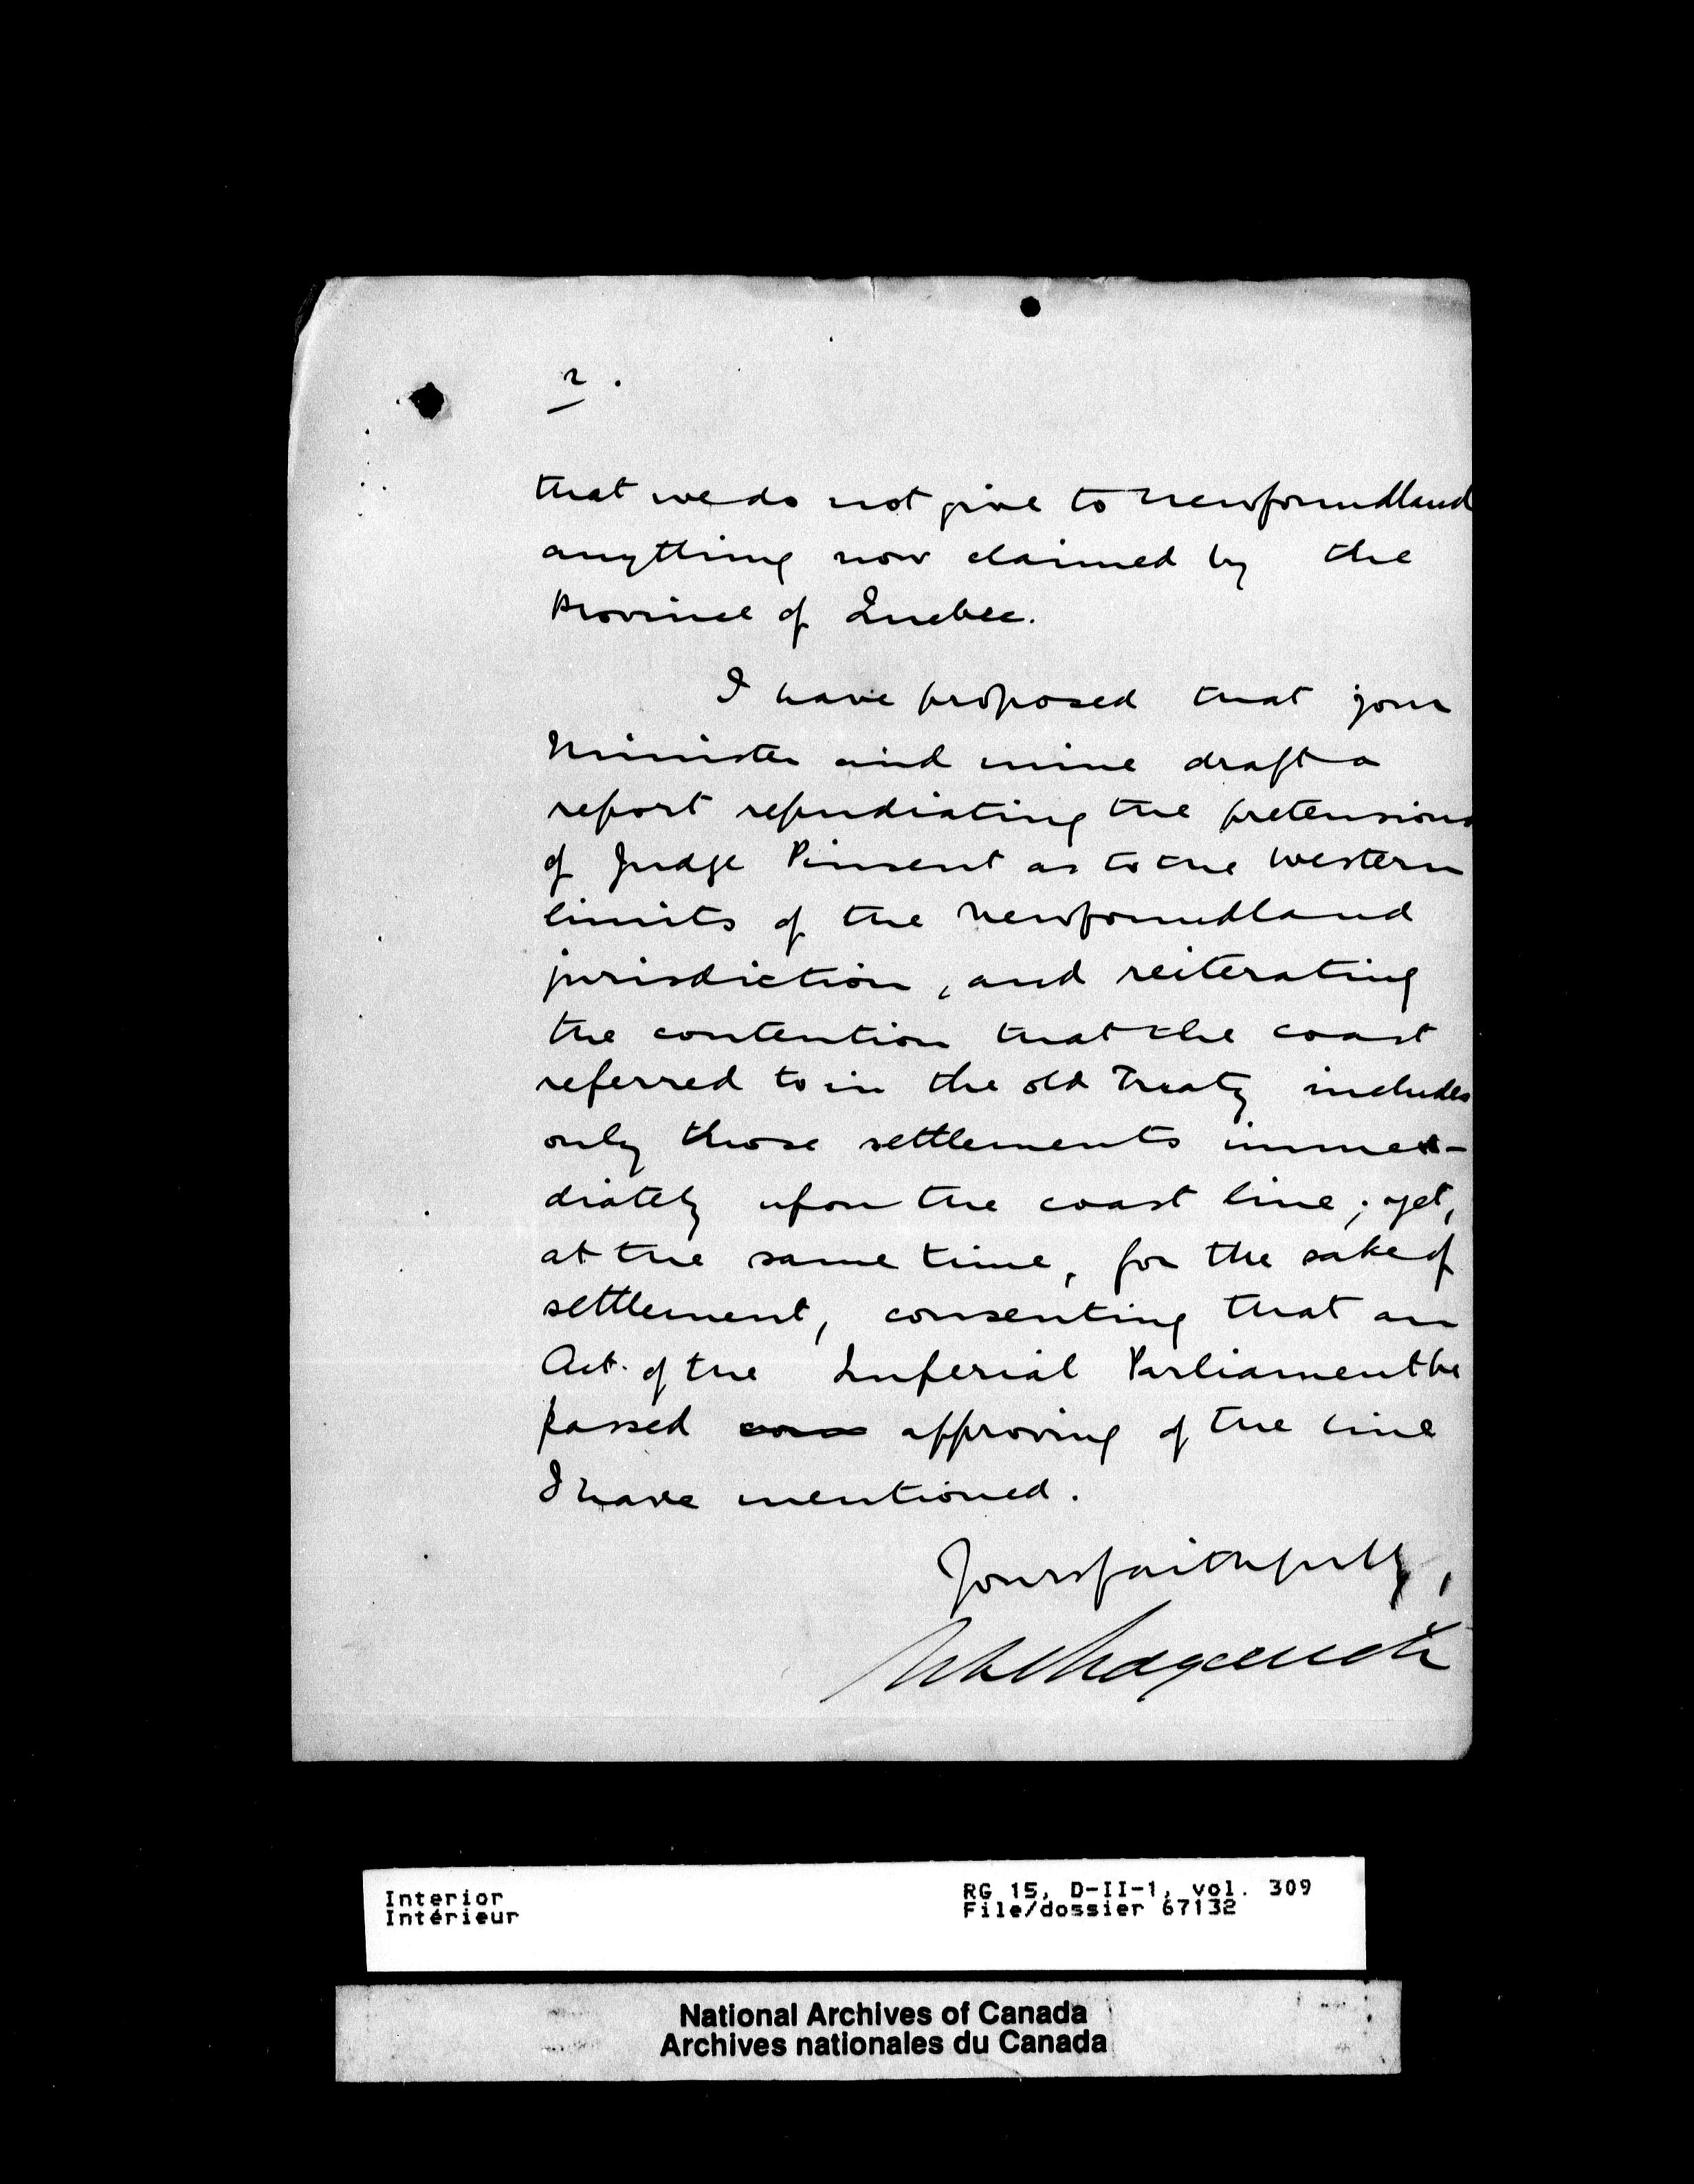 2.
that we do not give to Newfoundland
anything now claimed by the
Province of Quebec.
I have proposed that your
Minister and mine draft a
report repudiating the pretensions
of Judge Pinsent as to the western
limits of the Newfoundland
jurisdiction, and reiterating
the contention that the coast
referred to in the old Treaty includes
only those settlements imme-
diately upon the coast line; yet,
at the same time, for the sake of
settlement, consenting that an
Act of the Imperial Parliament be
passed approving of the line
I have mentioned.
Yours faithfully,
Interior
Intérieur
RG 15, D-II-1, vol. 309
File/dossier 67132
National Archives of Canada
Archives nationales du Canada